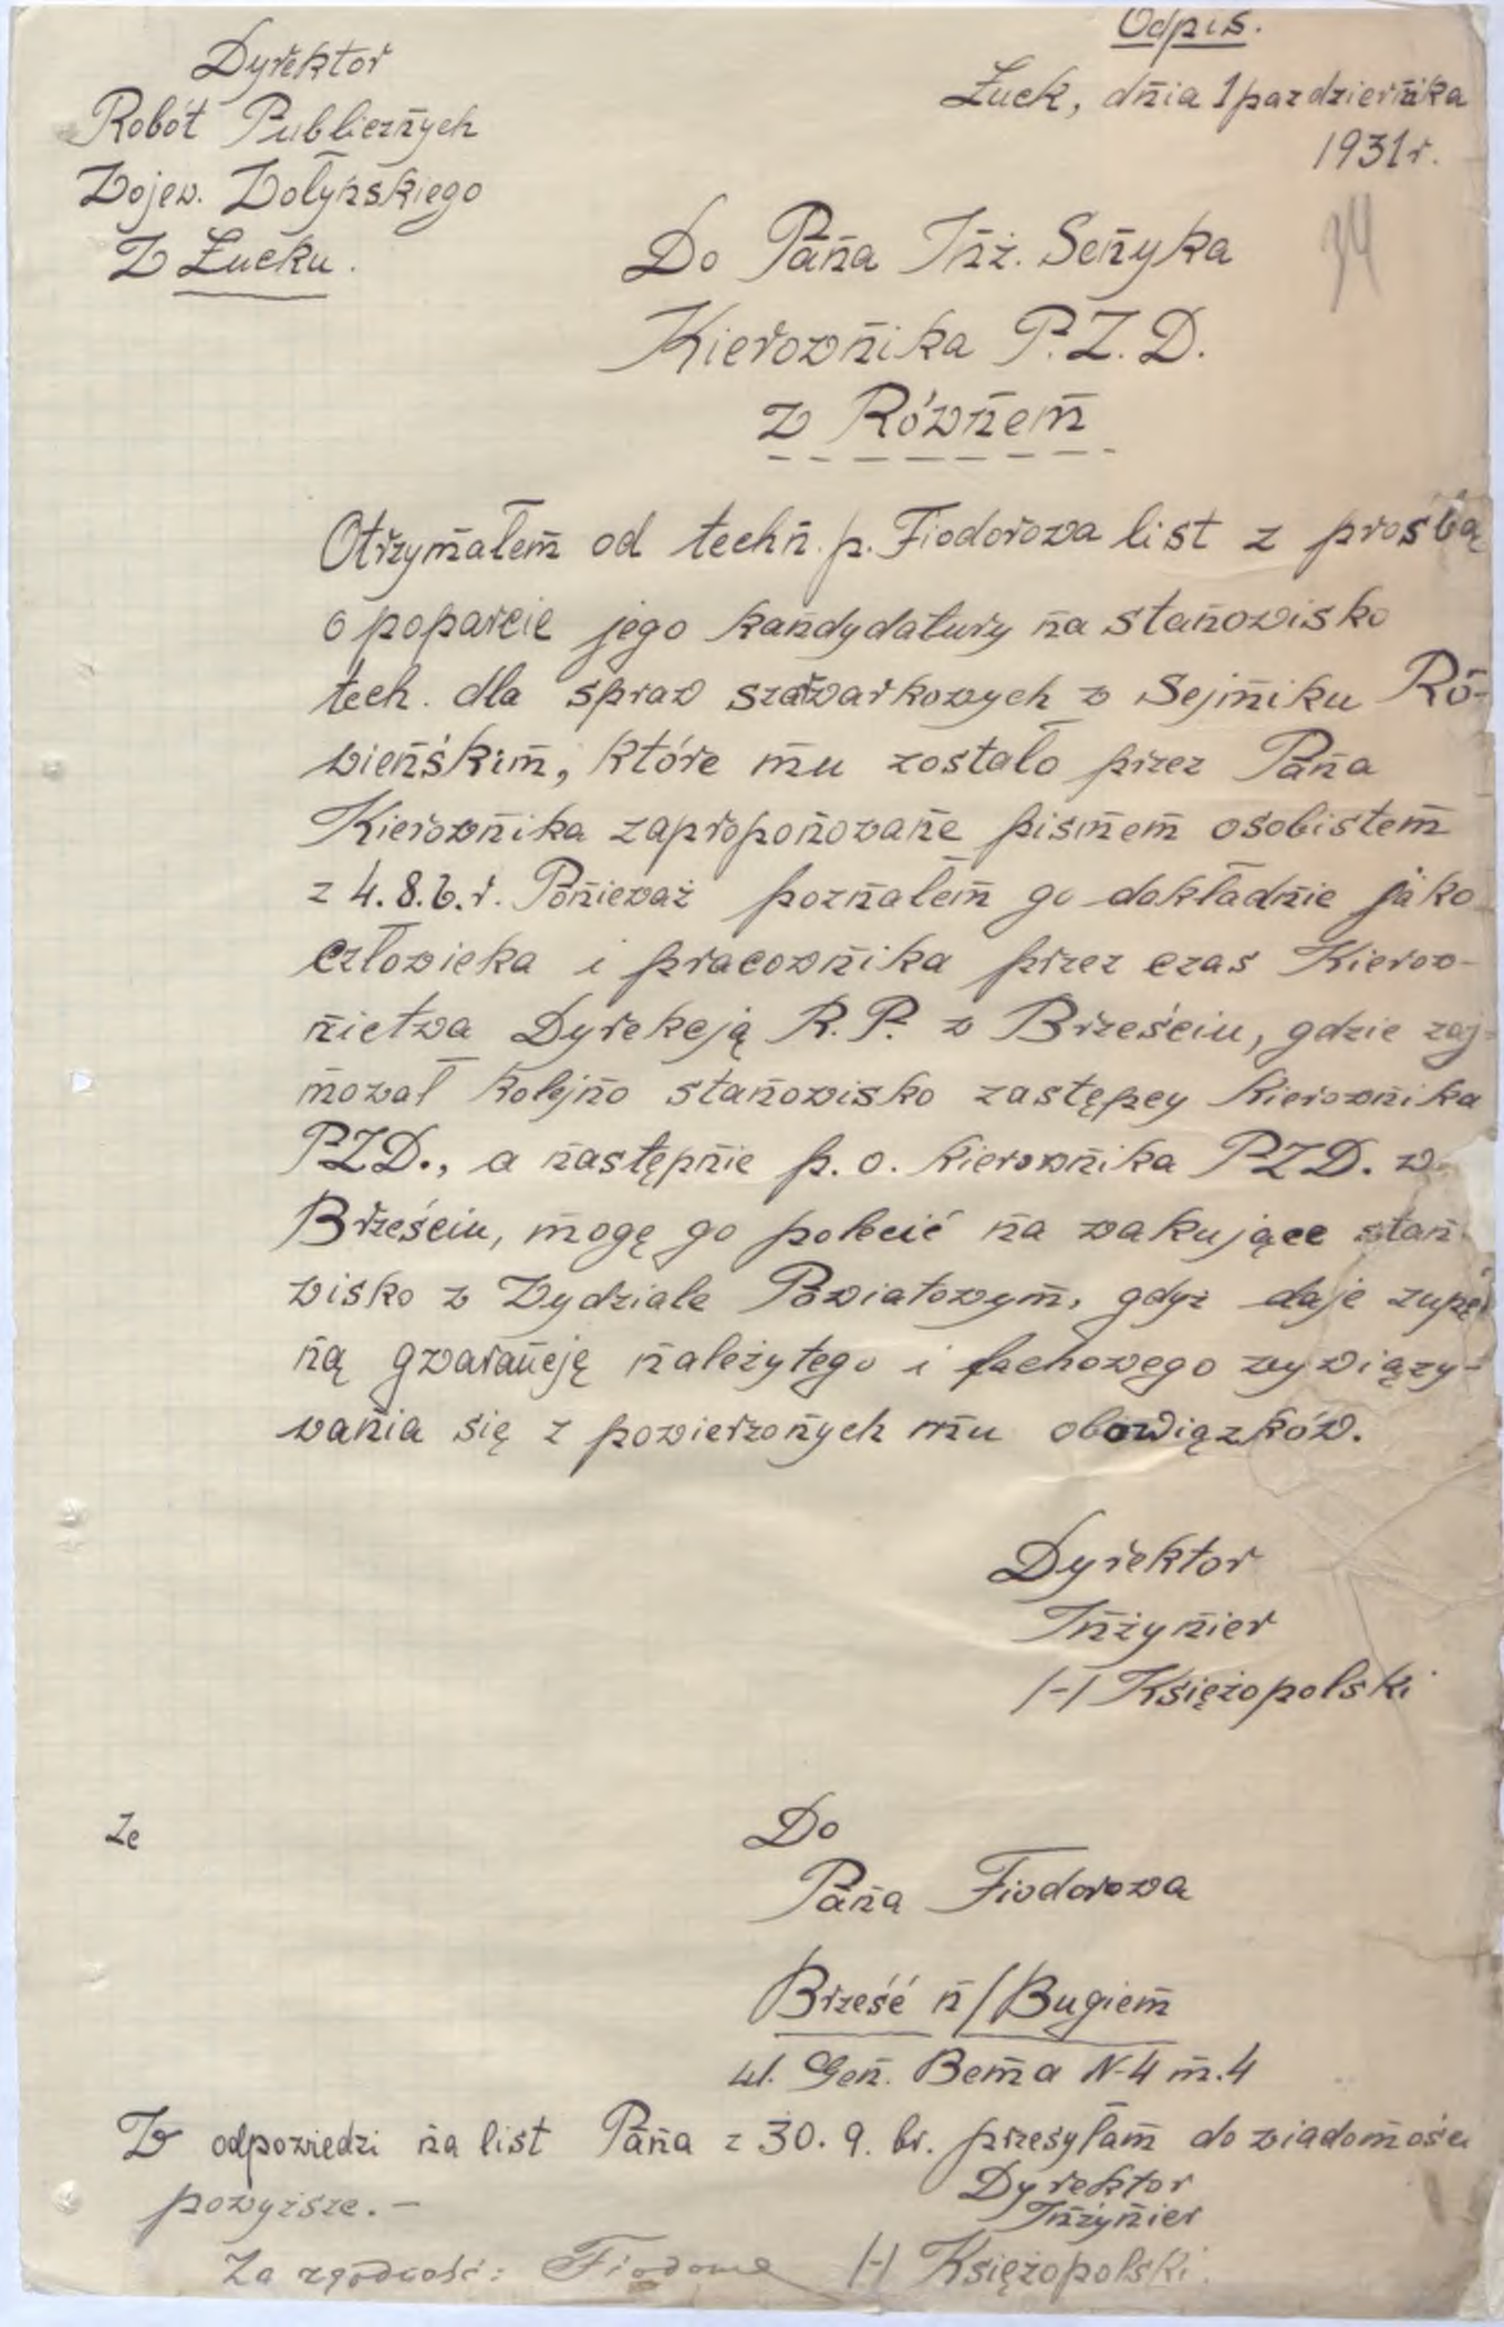 Odpis.
Dyrektor
Robót Publicznych
Wojew. Wołyńskiego
W Łucku.
Łuck, dnia 1 pazdziernika
1931 r.
34
Do Pana Inż. Senyka
Kierownika P.Z.D.
w Równem
Otrzymałem od techn. p. Fiodorowa list z prośbą
o poparcie jego kandydatury na stanowisko
tech. dla spraw szarwarkowych w Sejmiku Ró-
wieńskim, które mu zostało przez Pana
Kierownika zaproponowane pismem osobistem
z 4.8.b.r. Ponieważ poznałem go dokładnie jako
człowieka i pracownika przez czas Kierow-
nictwa Dyrekcją R.P. w Brześciu, gdzie zaj-
mował kolejno stanowisko zastępcy Kierownika
PZD., a następnie p.o. kierownika PZD. w
Brześciu, mogę go polecić na wakujące stan
wisko w Wydziale Powiatowym, gdyż daje zupeł
ną gwarancję należytego i fachowego wywiązy-
wania się z powierzonych mu obowiązków.
Dyrektor
Inżynier
/-/ Księżopolski
Ze
Do
Pana Fiodorowa
Brześć n/Bugiem
ul. Gen. Bema N-4 m.4
W odpowiedzi na list Pana z 30.9. br. przesyłam do wiadomości
powyższe.-
Dyrektor
Inżynier
/-/ Księżopolski.
Za zgodność: Fiodorow